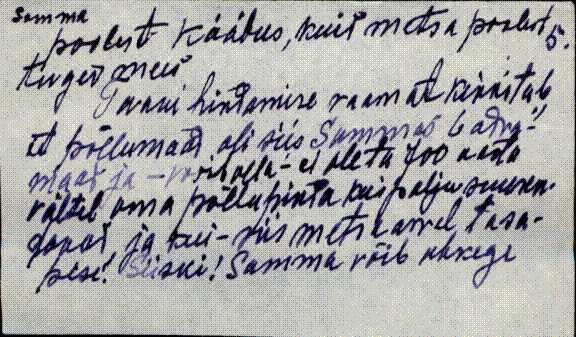 Samma
poolest Kääbus, kuid metsa poolest 5.
tugev mees
Taani hindamise raamat kinnitab
et põllumaad oli siis Sammas 6 adra-
maad ja - ei ole ta 700 aasta
vältel oma põllupinda kui palju suuren-
danud ja kui - siis metsa arvel tasa-
pesi! Siiski! Samma võib uhkege